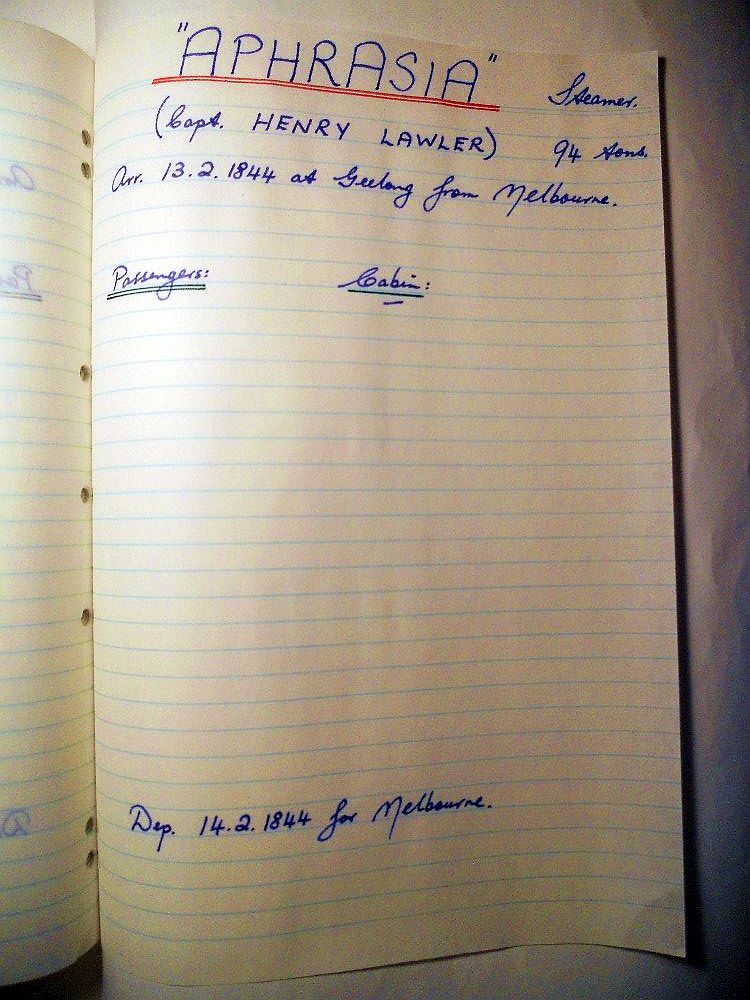 "APHRASIA"
Steamer.
(Capt. HENRY LAWLER)
94 tons.
Arr. 13.2.1844 at Geelong from Melbourne.
Passengers: Cabin:
Dep. 14.2.1844 for Melbourne.